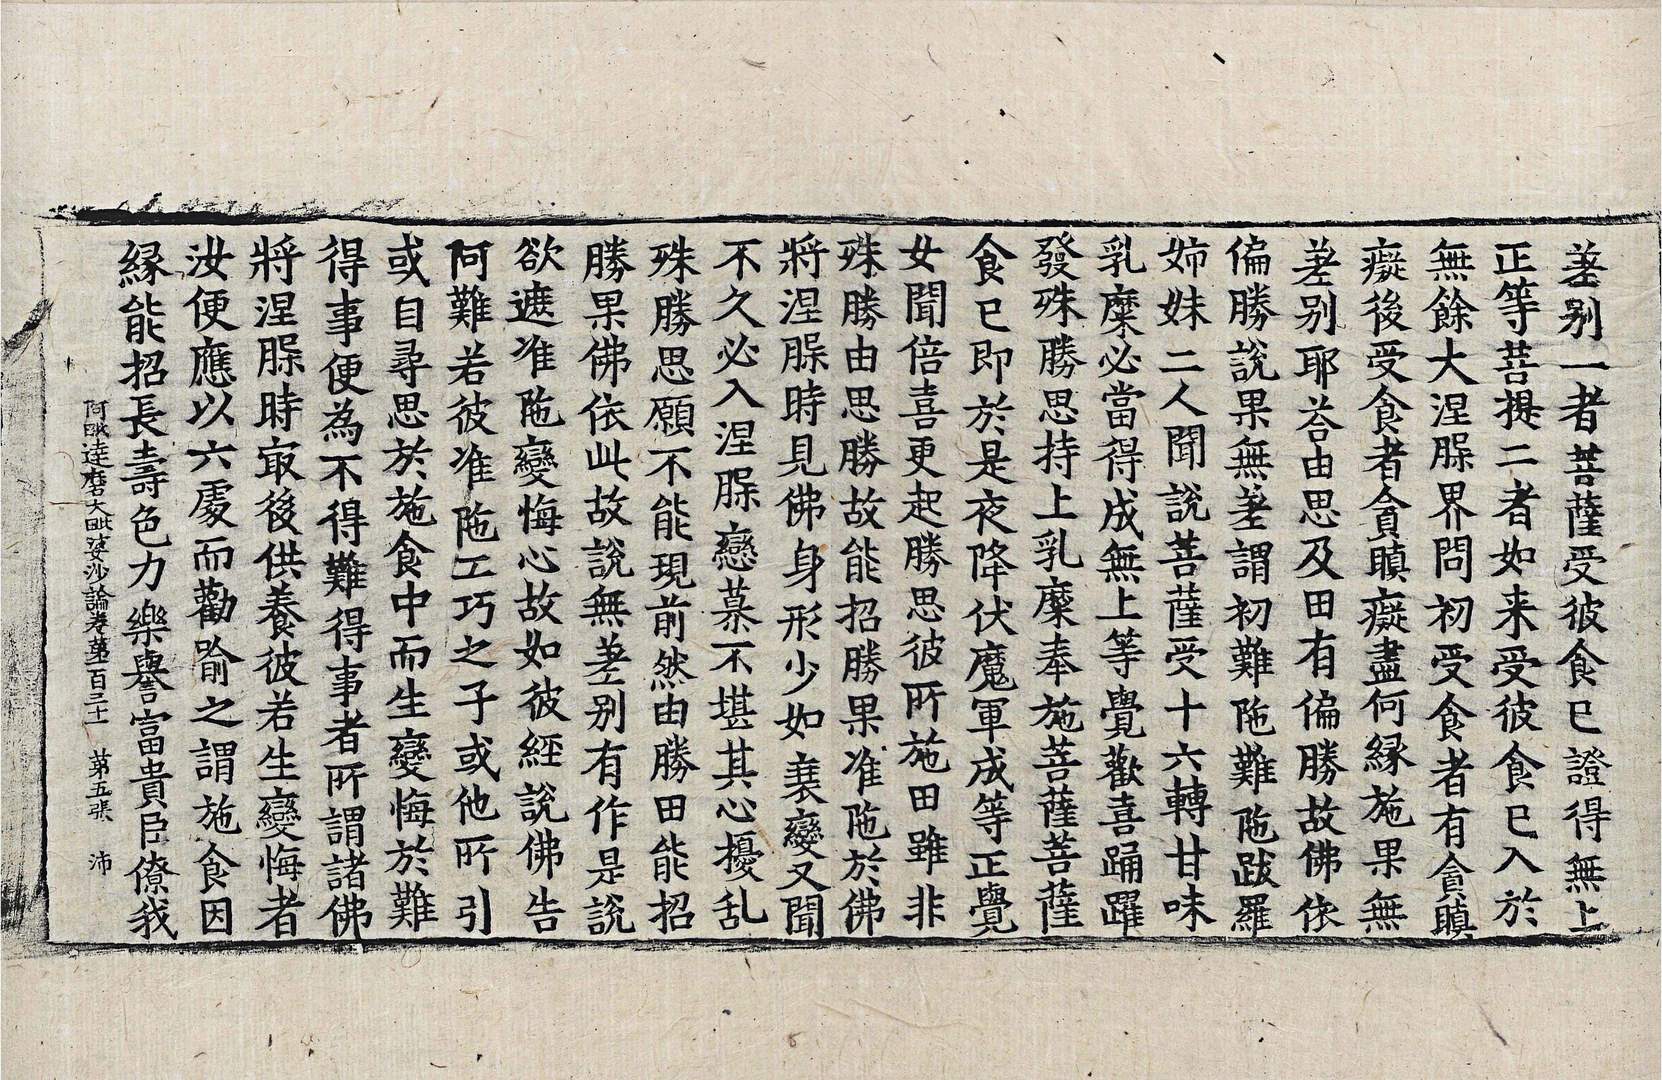 差别一者菩薩受彼食已證得無上
正等菩提二者如来受彼食已入於
無餘大涅槃界問初受食者有貪瞋
癡後受食者貪瞋癡盡何縁施果無
差别耶荅由思及田有偏勝故佛依
偏勝說果無差謂初難陁難陁跋羅
姉妹二人聞說菩薩受十六轉甘味
乳糜必當得成無上等覺歡喜踊躍
發殊勝思持上乳糜奉施菩薩菩薩
食已即於是夜降伏魔軍成等正覺
女聞倍喜更起勝思彼所施田雖非
殊勝由思勝故能招勝果准陁於佛
將涅槃時見佛身形少如衰變又聞
不久必入涅槃戀慕不堪其心擾乱
殊勝思願不能現前然由勝田能招
勝果佛依此故說無差别有作是說
欲遮准陁變悔心故如彼經說佛告
阿難若彼准陁工巧之子或他所引
或自尋思於施食中而生變悔於難
得事便為不得難得事者所謂諸佛
將涅槃時㝡後供養彼若生變悔者
汝便應以六處而勸喻之謂施食因
縁能招長壽色力樂譽富貴臣僚我
阿毗達磨大毗婆沙論卷第一百三十一 第五張 沛